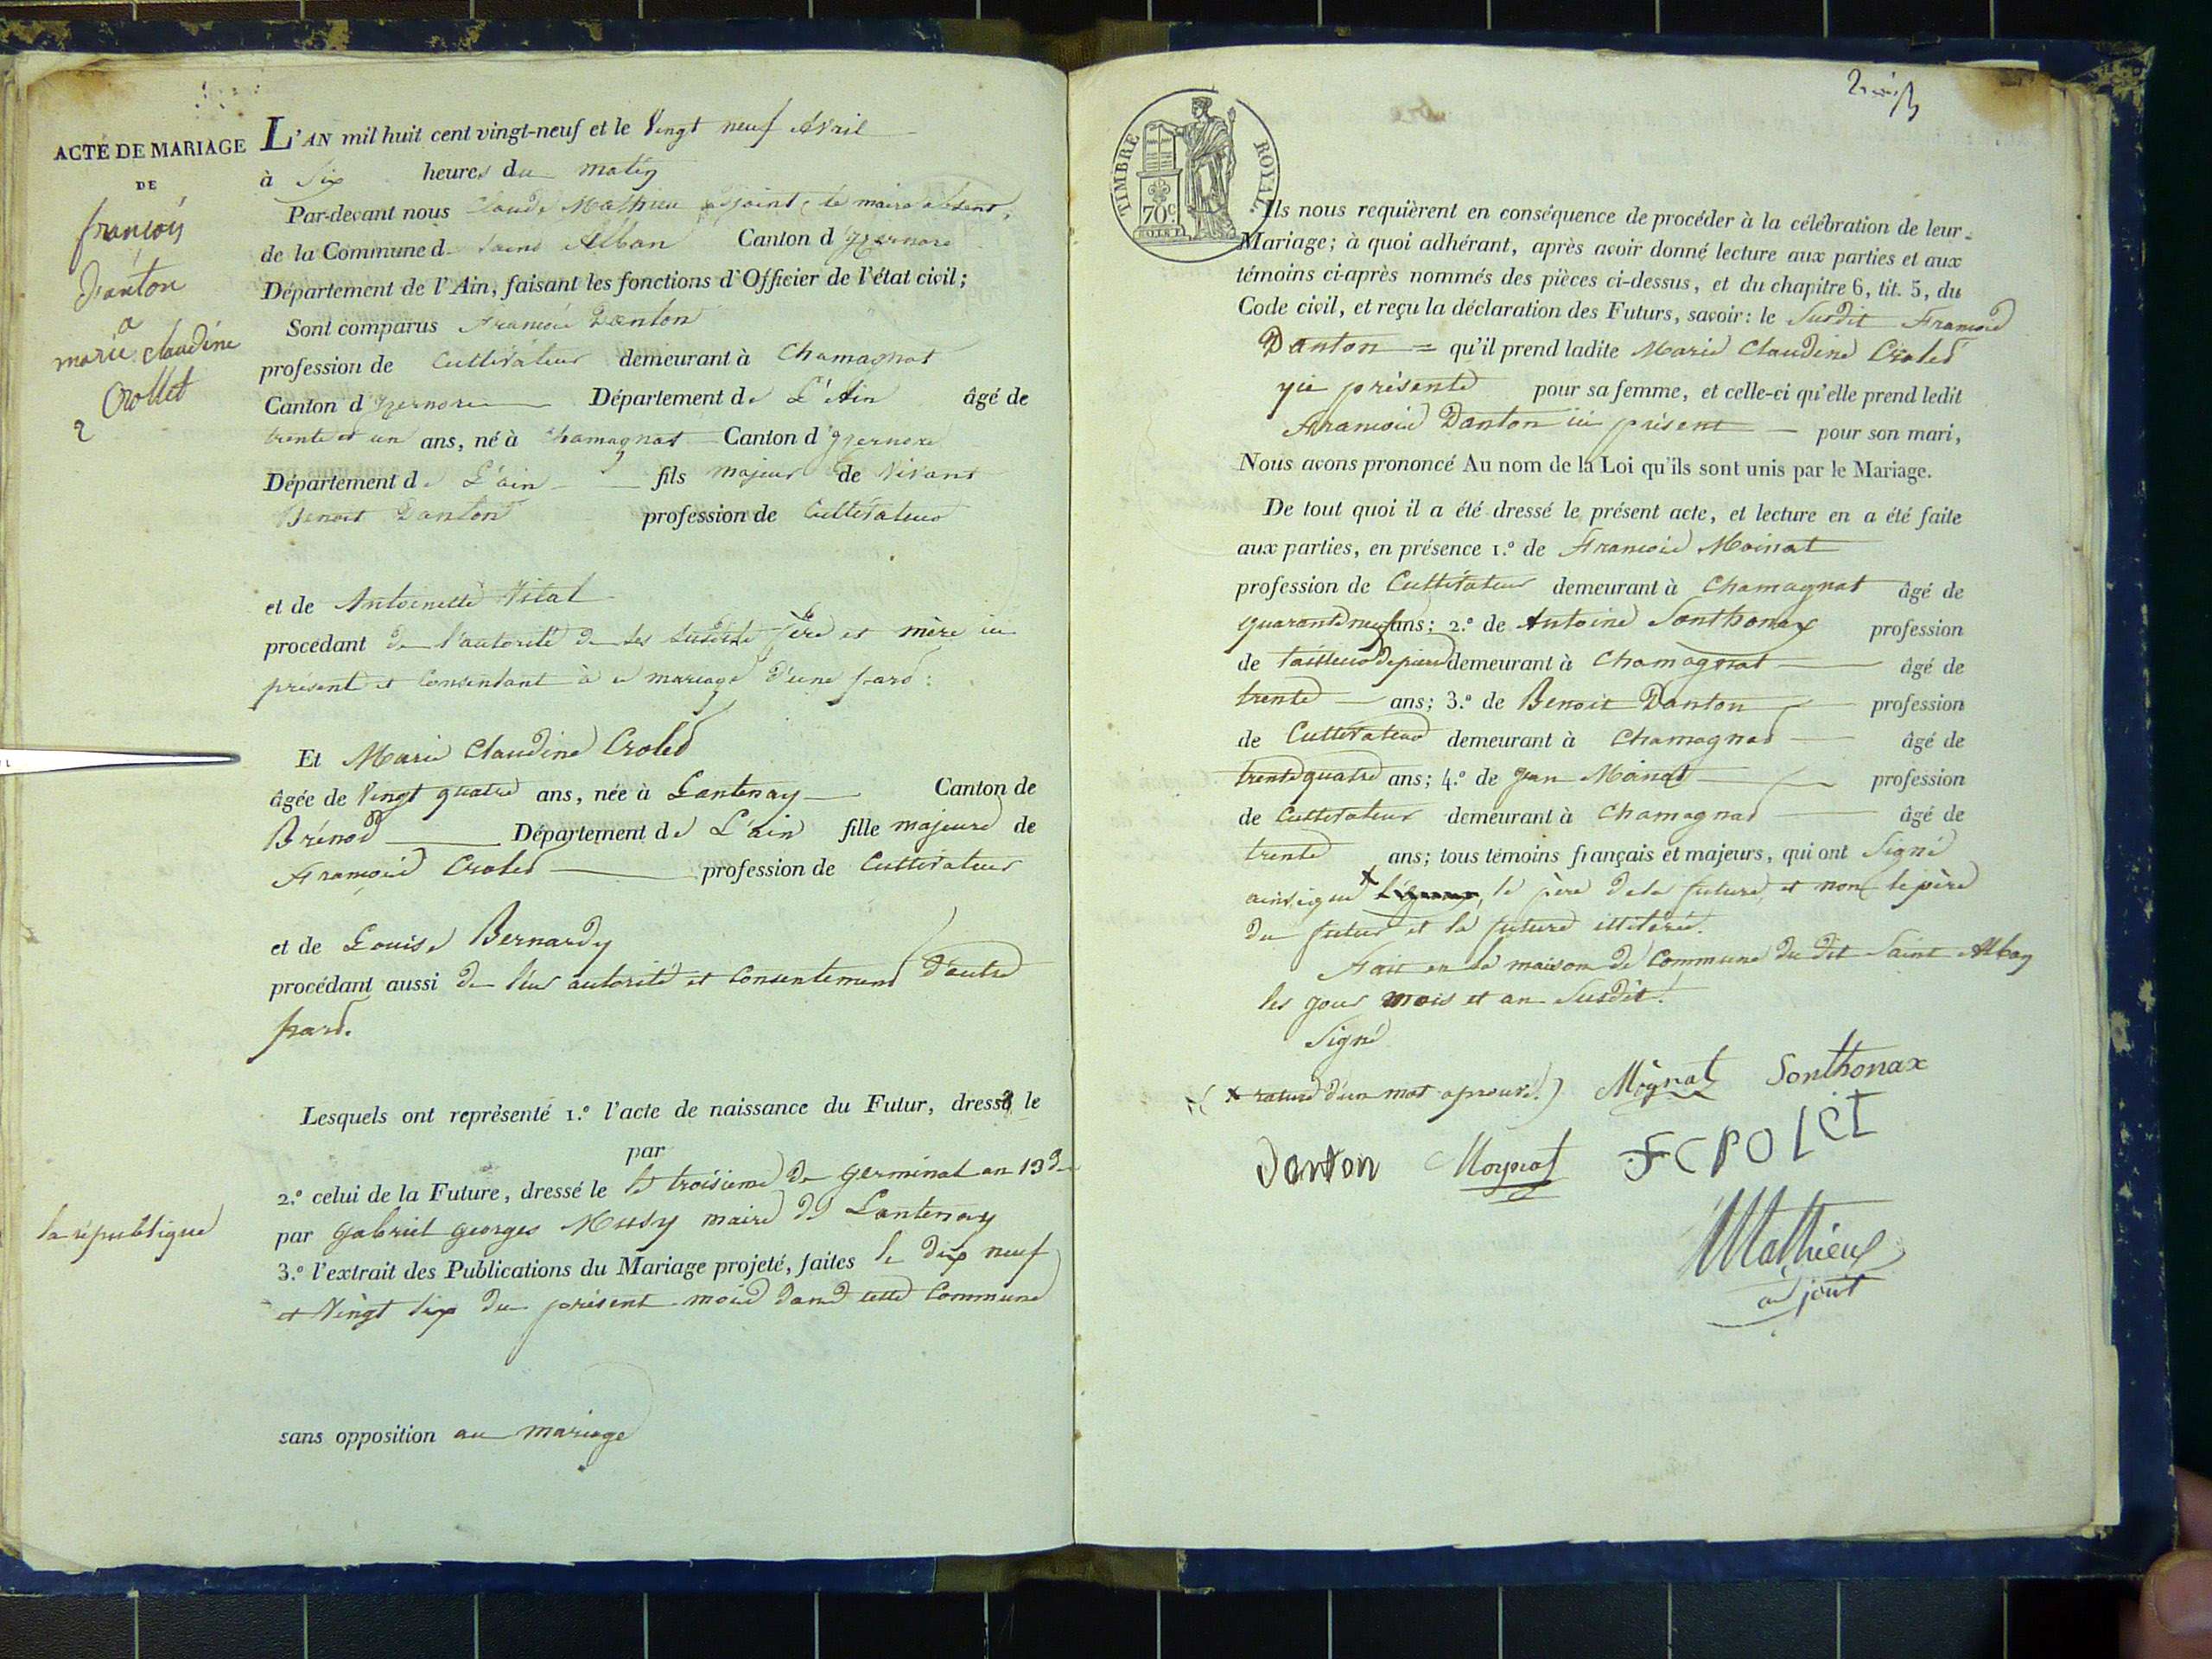 ACTE DE MARIAGE
DE
françois
danton
a
marie claudine
Crollet
2
L'AN mil huit cent vingt-neuf et le Vingt neuf Avril
à Six heures du matin
Par-devant nous Claude Mathieu adjoint, le maire absent,
de la Commune d Saint Alban Canton d'yzernore
Département de l'Ain, faisant les fonctions d'Officier de l'état civil;
Sont comparus François Danton
profession de Cultivateur demeurant à Chamagnat
Canton d yzernore Département de L'Ain âgé de
trente et un ans, né à Chamagnat Canton d'yzernore
Département de L'ain fils majeur de Vivant
Benoit Danton profession de Cultivateur
et de Antoinette Vital
procédant de l'autorité de ses susdits père et mère ici
présent et Consentant à ce mariage d'une part:
Et Marie Claudine Crolet
âgée de Vingt quatre ans, née à Lantenay Canton de
Brénod Département de L'ain fille majeure de
François Crolet profession de Cultivateur
et de Louise Bernardy
procédant aussi de leur autorité et Consentement d'autre
part.
Lesquels ont représenté 1.º l'acte de naissance du Futur, dressé le
par
2.º celui de la Future, dressé le le troisieme de germinal an 13 de
la république
par gabriel georges Musy maire de Lantenay
3.º l'extrait des Publications du Mariage projeté, faites le dix neuf
et Vingt six du présent mois dans cette Commune
sans opposition au mariage
TIMBRE ROYAL
70 C.
Ils nous requièrent en conséquence de procéder à la célébration de leur
Mariage; à quoi adhérant, après avoir donné lecture aux parties et aux
témoins ci-après nommés des pièces ci-dessus, et du chapitre 6, tit. 5, du
Code civil, et reçu la déclaration des Futurs, savoir: le Susdit François
Danton = qu'il prend ladite Marie Claudine Crolet
yci présente pour sa femme, et celle-ci qu'elle prend ledit
François Danton ici présent pour son mari,
Nous avons prononcé Au nom de la Loi qu'ils sont unis par le Mariage.
De tout quoi il a été dressé le présent acte, et lecture en a été faite
aux parties, en présence 1.º de François Moinat
profession de Cultivateur demeurant à Chamagnat âgé de
quarante neuf ans; 2.º de Antoine Sonthonax profession
de tailleur de pierre demeurant à Chamagnat âgé de
trente ans; 3.º de Benoit Danton profession
de Cultivateur demeurant à Chamagnat âgé de
trente quatre ans; 4.º de Jean Moinat profession
de Cultivateur demeurant à Chamagnat âgé de
trente ans; tous témoins français et majeurs, qui ont Signé
ainsi que le père de la future, et non le père
du futur et la future illitéré.
Fait en la maison de Commune du dit Saint Alban
les jour mois et an Susdit.
Signé
(x rature d'un mot aprouvé.) Mognat Sonthonax
Danton Moynat FCROLET
Mathieu
adjoint